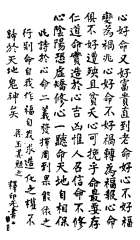 心好命又好富貴直到老命好心不好福
變為禍兆心好命不好禍轉為福報心命
俱不好遭殃且貧夭心可挽乎命最要存
仁道命實造於心吉凶惟人召信命不修
心陰陽恐虛矯修心一聽命天地自相保
此詩於心命二義發揮周到果能依之
行則命自我作福自我求造化之權不
歸於天地鬼神矣
釋印光書